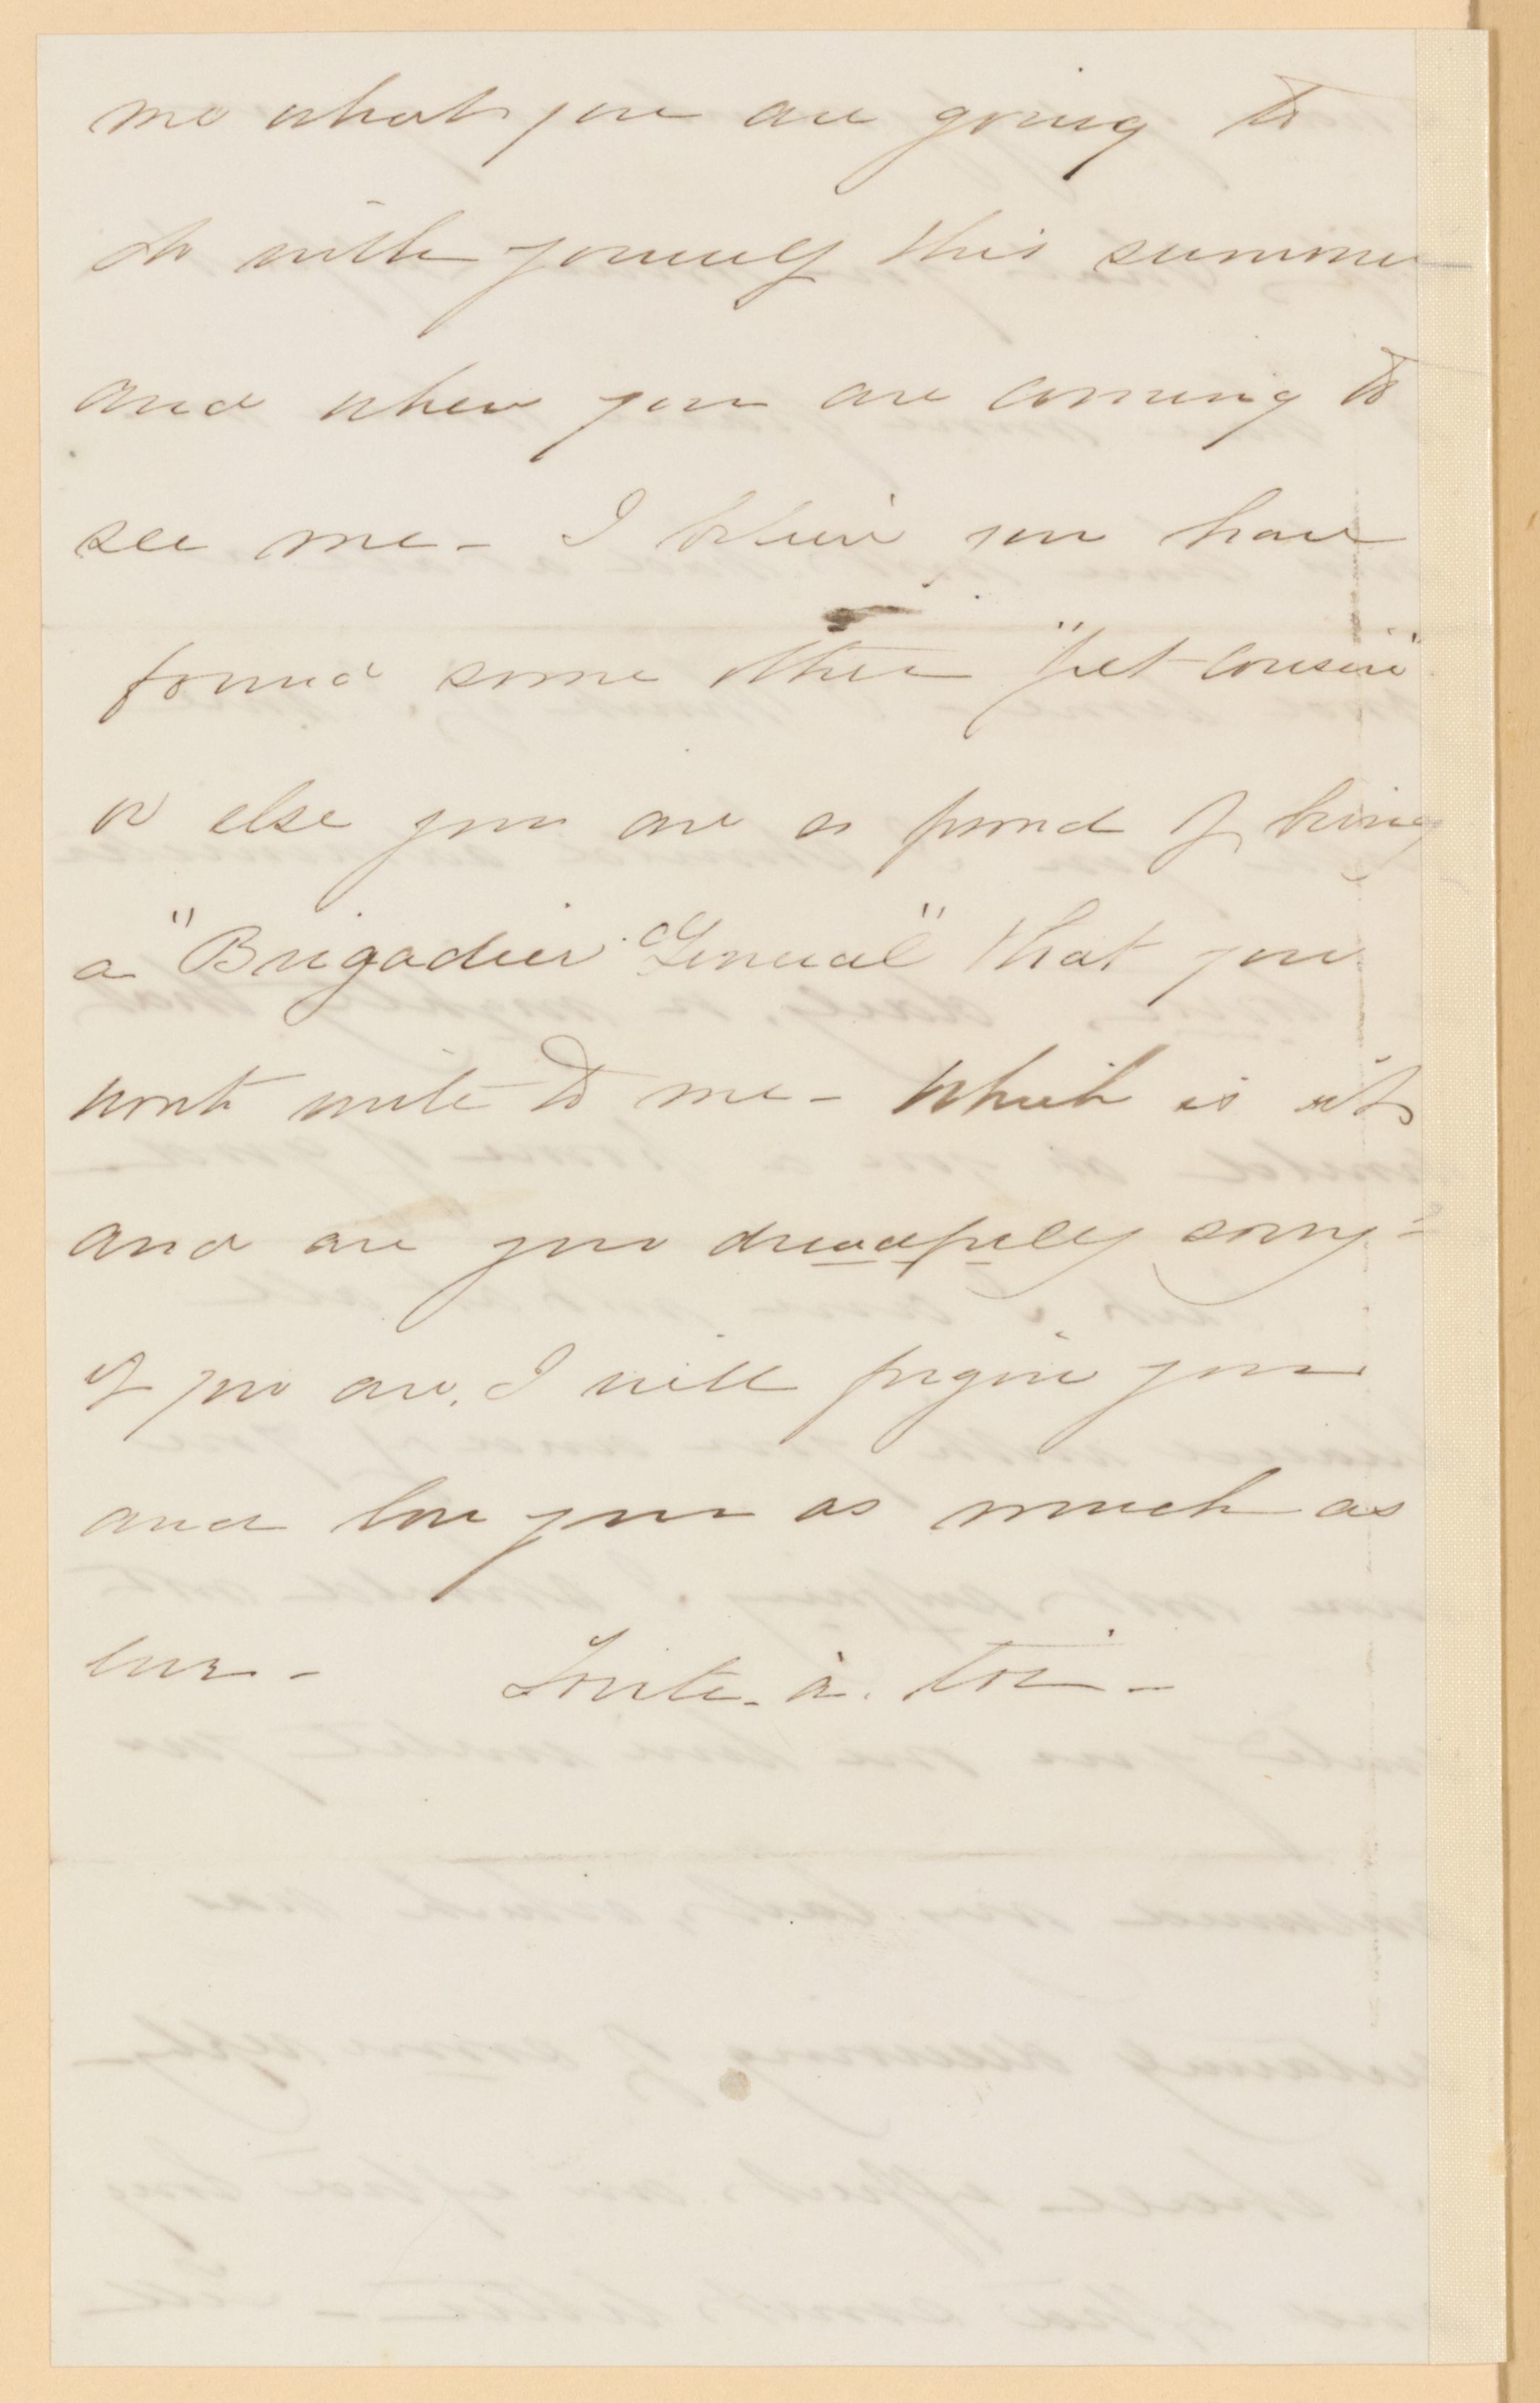 me what you are going to
do with yourself this summer
and when you are coming to
see me - I believe you have
found some other "pet-cousin"
or else you are so proud of being
a "Brigadier General" that you
wont write to me - which is it
and are you dreadfully sorry -
if you are, I will forgive you
and love you as much as
ever - Toute. à. toi -